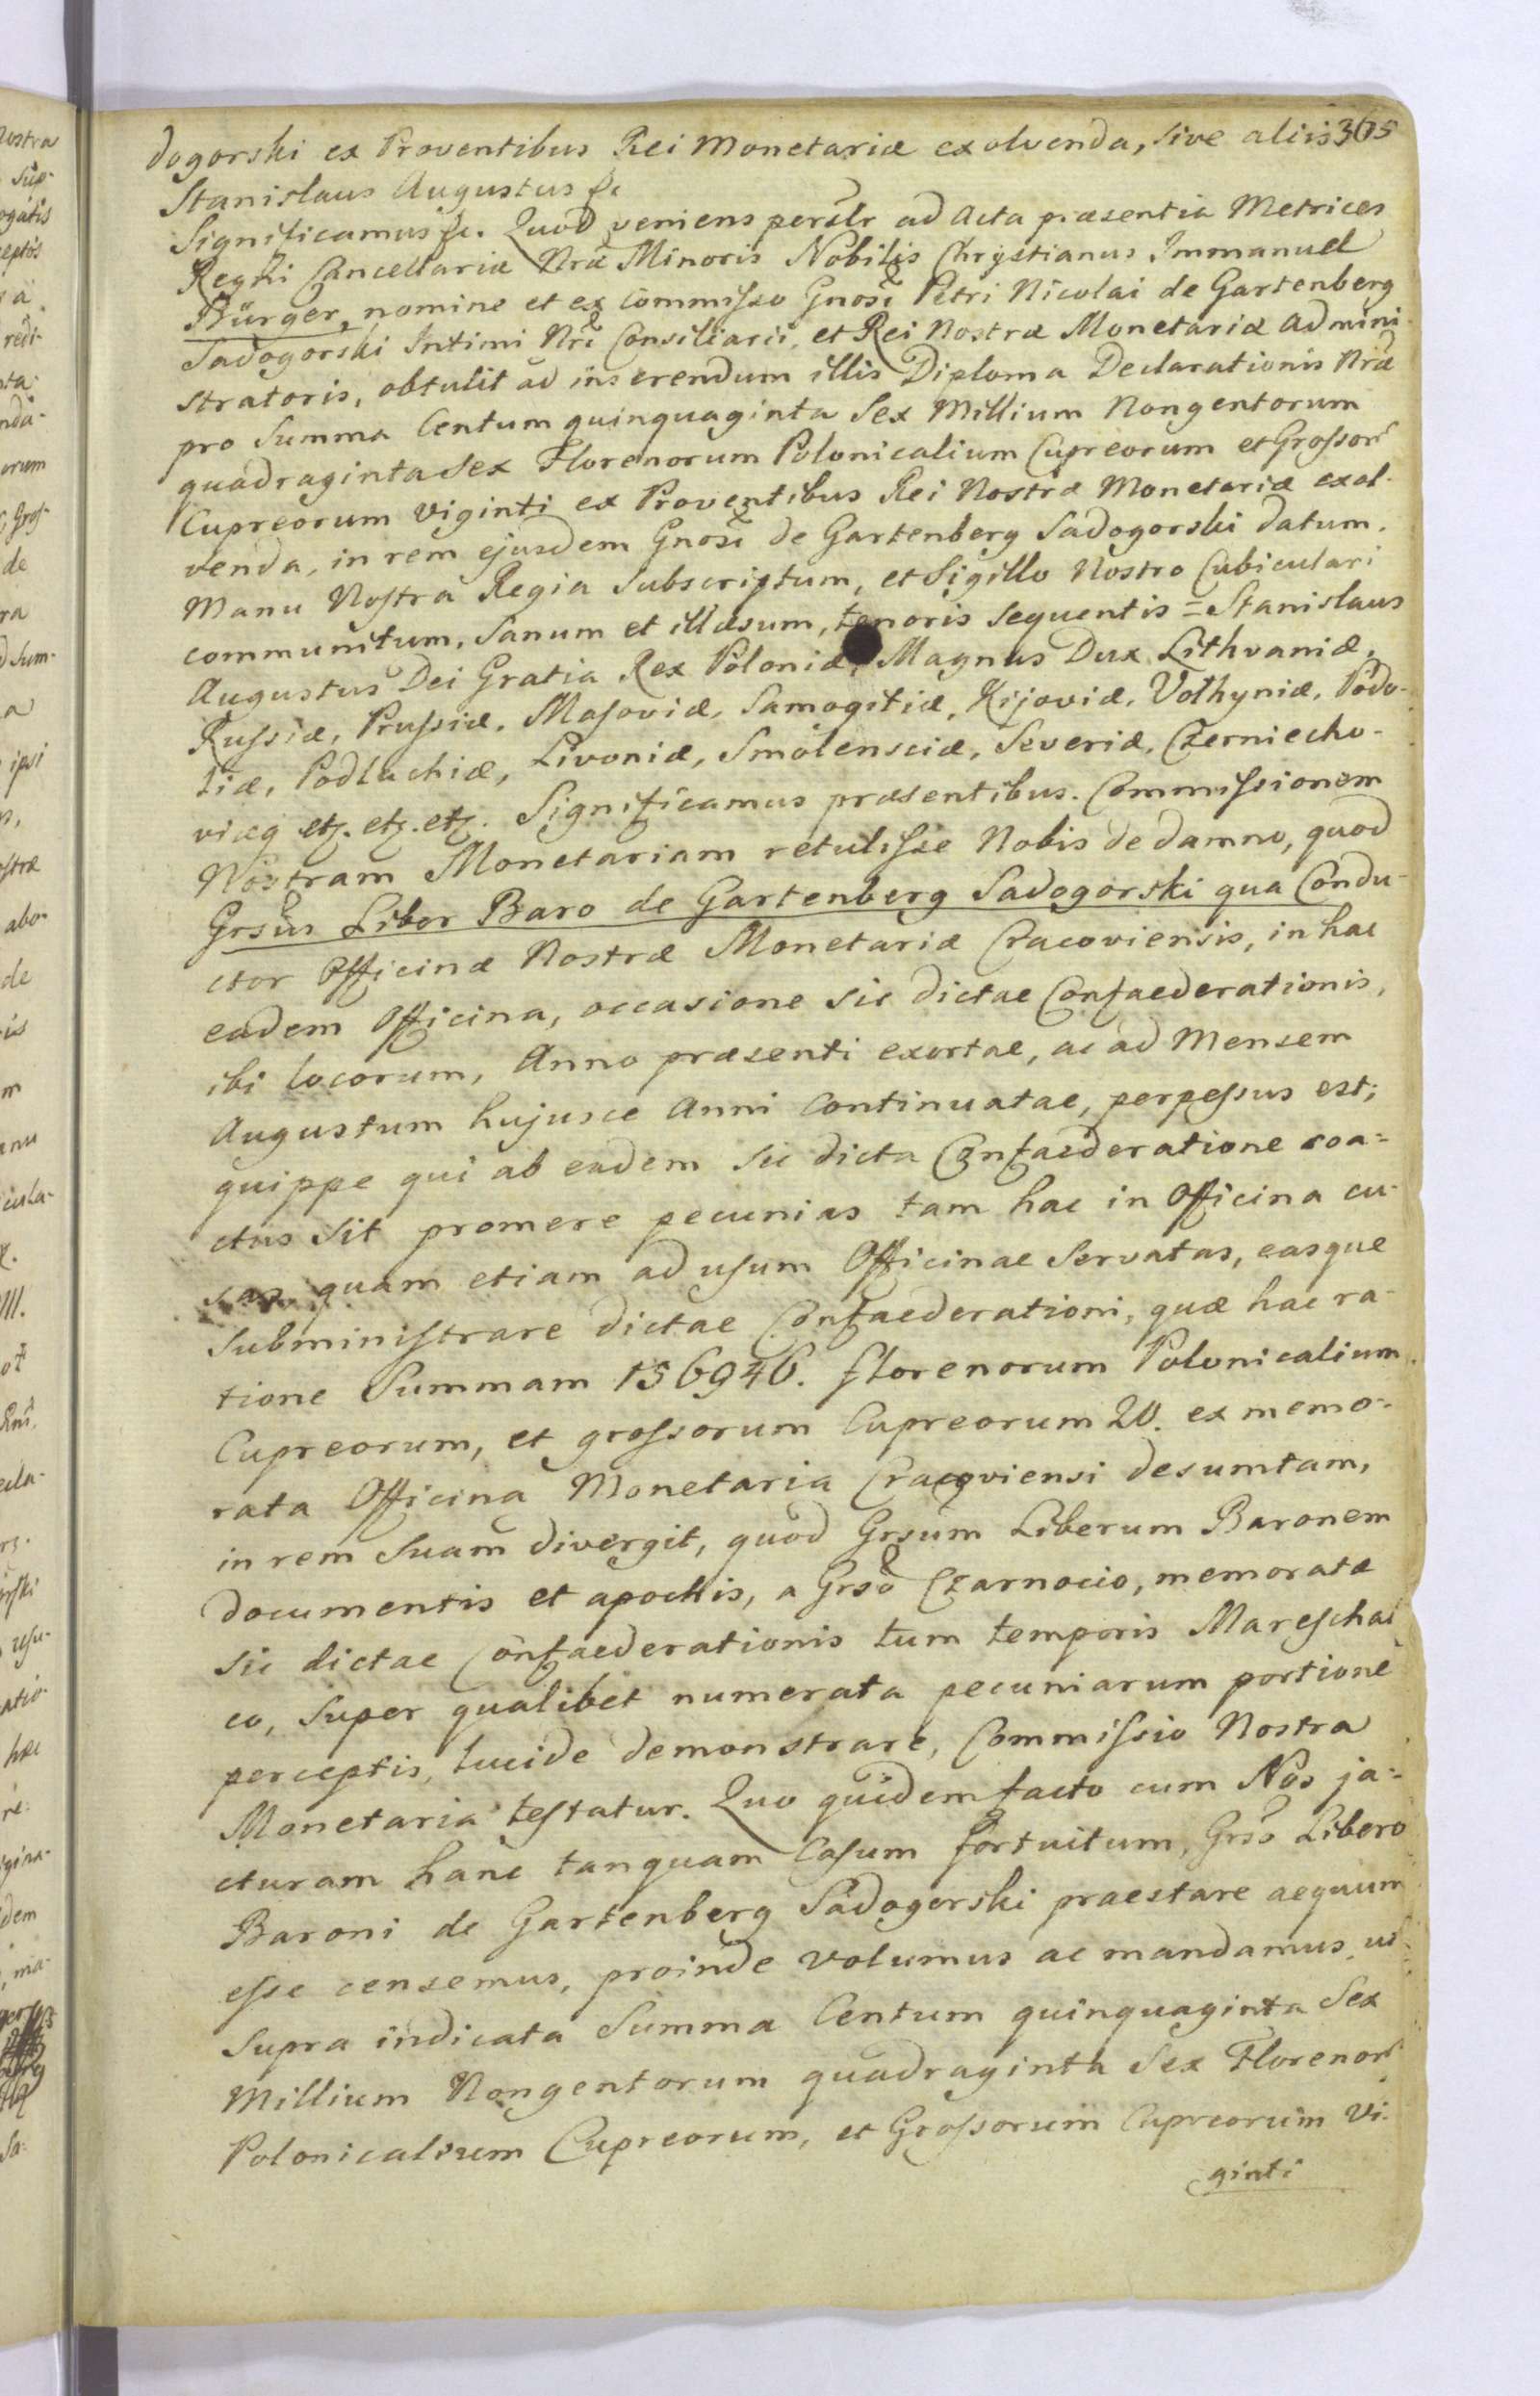 dogorski ex Proventibus Rei Monetariæ exolvenda, sive aliis 365
Stanislaus Augustus &c
Significamus &c. Quod veniens perslr ad Acta præsentia Metrices
Regni Cancellariæ Nræ Minoris Nobilis Chrystianus Immanuel
Bürger, nomine et ex commisso Gnosi Petri Nicolai de Gartenberg
Sadogorski Intimi Nri Consiliarii, et Rei Nostræ Monetariæ Admini-
stratoris, obtulit ad inserendum illis Diploma Declarationis Nræ
pro Summa Centum quinquaginta Sex Millium Nongentorum
quadraginta Sex Florenorum Polonicalium Cupreorum et Grossor
Cupreorum Viginti ex Proventibus Rei Nostræ Monetariæ exol-
venda, in rem ejusdem Gnosi de Gartenberg Sadogorski datum.
Manu Nostra Regia Subscriptum, et Sigillo Nostro Cubiculari
communitum, Sanum et illæsum, tenoris sequentis = Stanislaus
Augustus Dei Gratia Rex Poloniæ, Magnus Dux Lithvaniæ,
Russiæ, Prussiæ, Masoviæ, Samogitiæ, Kijoviæ, Volhyniæ, Podo-
liæ, Podlachiæ, Livoniæ, Smolensciæ, Severiæ, Czerniecho-
viæq etz. etz. etz. Significamus præsentibus. Commissionem
Nostram Monetariam retulisse Nobis de damno, quod
Grsus Liber Baro de Gartenberg Sadogorski qua Condu-
ctor Officinæ Nostræ Monetariæ Cracoviensis, in hac
eadem Officina, occasione sic dictae Confaederationis,
ibi locorum, Anno præsenti exortae, ac ad Mensem
Augustum hujusce Anni Continuatae, perpessus est;
quippe qui ab eadem sic dicta Confaederatione coa-
ctus sit promere pecunias tam hac in Officina cu-
sas quam etiam ad usum Officinae Servatas, easque
Subministrare dictae Confaederationi, quæ hac ra-
tione Summam 156946. florenorum Polonicalium
Cupreorum, et grossorum Cupreorum 20. ex memo-
rata Officina Monetaria Cracoviensi desumtam,
in rem Suam divergit, quod Grsum Liberum Baronem
documentis et apochis, a Grso Czarnocio, memoratæ
sic dictae Confaederationis tum temporis Mareschal
co, Super qualibet numerata pecuniarum portione
perceptis, lucide demonstrare, Commissio Nostra
Monetaria testatur. Quo quidem facto cum Nos ja-
cturam hanc tanquam Casum fortuitum, Grso Libero
Baroni de Gartenberg Sadogorski praestare aequum
esse censemus, proinde volumus ac mandamus, ut
supra indicata Summa Centum quinquaginta Sex
Millium Nongentorum quadraginta Sex Florenor
Polonicalium Cupreorum, et Grossorum Cupreorum Vi-
ginti